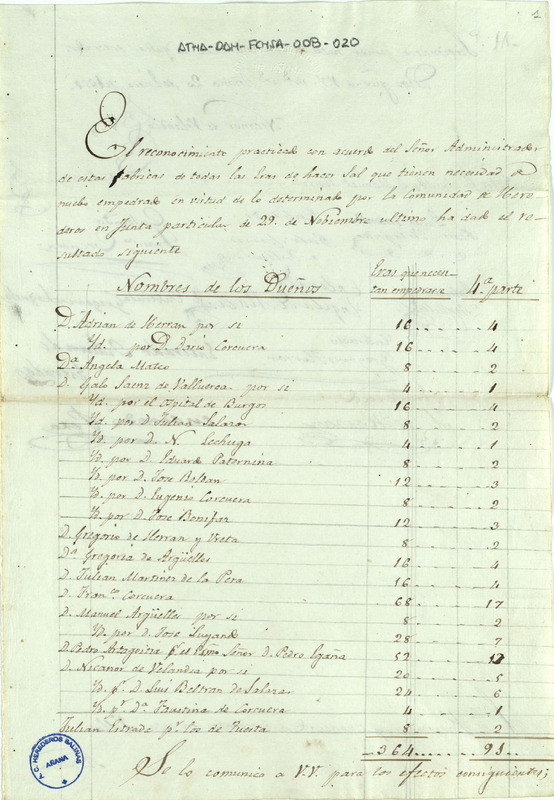 1
ATHA-DAH-FCHSA-008-020
El reconocimiento practicado con acuerdo del Señor Administrador
de estas fabricas de todas las Eras de hacer Sal que tienen necesidad de
nuebo empedrado en virtud de lo determinado por la Comunidad de Here-
deros en Junta particular de 29. de Nobiembre ultimo ha dado el re-
sultado siguiente
Nombres de los Dueños Eras que necesi-
tan empedrarse 4.ª parte
D. Adrian de Herran por si 16 4
Yd. por D. Dario Corcuera 16 4
D.ª Angela Mateo 8 2
D. Galo Saenz de Valluerca por si 4 1
Yd. por el ospital de Burgos 16 4
Yd. por D. Julian Salazar 8 2
Yd. por D. N. Lechuga 4 1
Yd. por D. Eduardo Paternina 8 2
Yd. por D. Jose Roldan 12 3
Yd. por D. Eugenio Corcuera 8 2
Yd. por D. Jose Bonifaz 12 3
D. Gregorio de Herran y Ureta 8 2
D.ª Gregoria de Argüelles 16 4
D. Julian Martinez de la Pera 16 4
D. Fran.co Corcuera 68 17
D. Manuel Argüelles por si 8 2
Yd. por D. Jose Luyando 28 7
D. Pedro Artageitia p.r el Exmo Señor D. Pedro Egaña 52 13
D. Nicanor de Velandia por si 20 5
Yd. p.r D. Luis Beltran de Salazar 24 6
Yd. p.r D.ª Faustina de Corcuera 4 1
Julian Estrada p.r los de Fuesta 8 2
364 91
Se lo comunico a V.V. para los efectos consiguientes;
C. HEREDEROS SALINAS
AÑANA